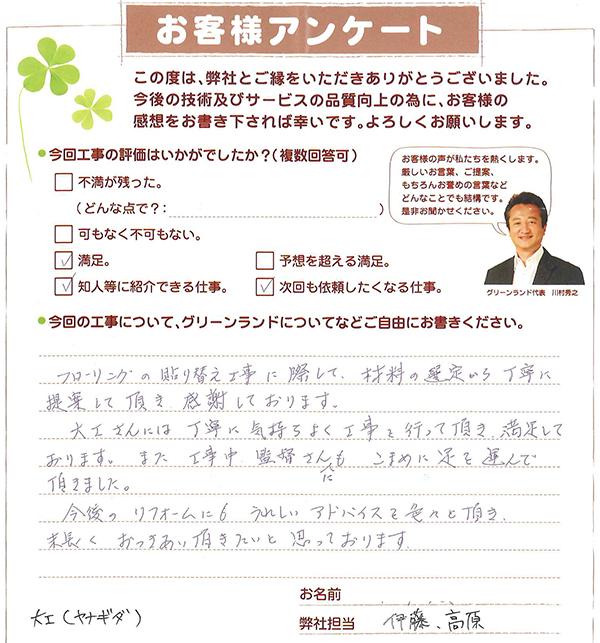 お客様アンケート
この度は、弊社とご縁をいただきありがとうございました。
今後の技術及びサービスの品質向上の為に、お客様の
感想をお書き下されば幸いです。よろしくお願いします。
今回工事の評価はいかがでしたか?(複数回答可)
不満が残った。
(どんな点で?: )
可もなく不可もない。
満足。
予想を超える満足。
知人等に紹介できる仕事。
次回も依頼したくなる仕事。
お客様の声が私たちを熱くします。
厳しいお言葉、ご提案、
もちろんお誉めの言葉など
どんなことでも結構です。
是非お聞かせください。
グリーンランド代表 川村秀之
今回の工事について、グリーンランドについてなどご自由にお書きください。
フローリングの貼り替え工事に際して、材料の選定から丁寧に
提案して頂き感謝しております。
大工さんには丁寧に気持ちよく工事を行って頂き、満足して
おります。また工事中監督さんも こまめに足を運んで
頂きました。
今後のリフォームにも うれしいアドバイスを色々と頂き、
末長く おつきあい頂きたいと思っております。
お名前
大工(ヤナギダ)
弊社担当 伊藤、高原